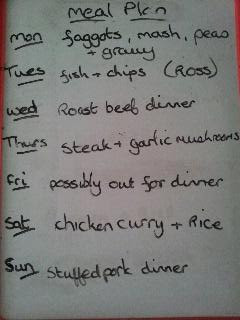 meal Plan
mon faggots, mash, peas
+ gravy
Tues fish + chips (Ross)
wed Roast beef dinner
Thurs steak + garlic mushrooms
Fri possibly out for dinner
Sat chicken curry + Rice
Sun Stuffed pork dinner